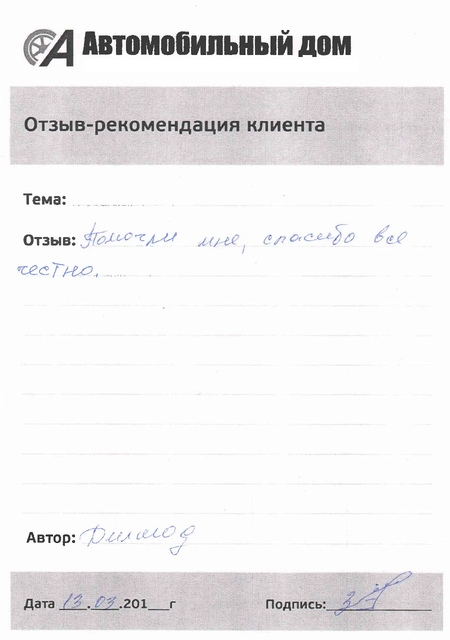 Автомобильный дом
Отзыв-рекомендация клиента
Тема:
Отзыв: Помогли мне, спасибо все
честно.
Автор:
Дата 13.03.201__г Подпись: